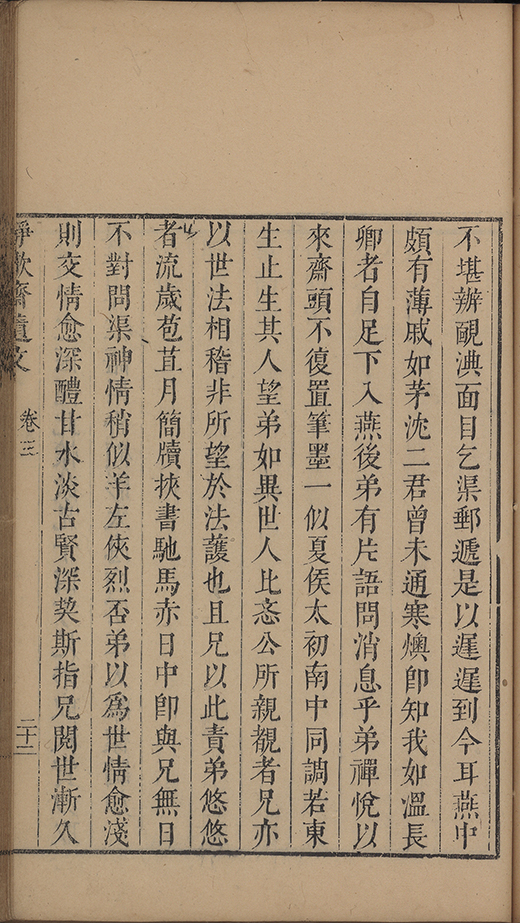 不堪辦靦淟面目乞渠郵遞是以遲遲到今耳燕中
頗有薄戚如茅沈二君曾未通寒燠卽知我如溫長
卿者自足下入燕後弟有片語問消息乎弟禪悅以
來齋頭不復置筆墨一似夏侯太初南中同調若東
生止生其人望弟如異世人比忞公所親覩者兄亦
以世法相稽非所望於法䕶也且兄以此責弟悠悠
者流歲苞苴月簡牘挾書馳馬赤日中卽與兄無日
不對問渠神情稍似羊左俠烈否弟以爲世情愈淺
則交情愈深醴甘水淡古賢深𥘉斯指兄閱世漸久
齋遺文 卷三 二十二